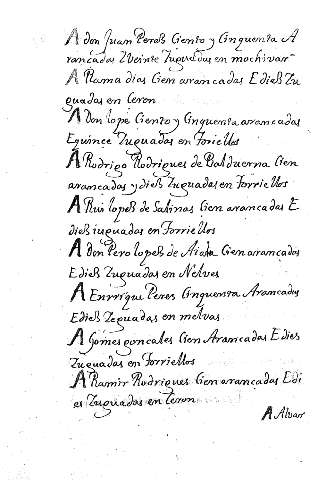 A don Juan Peres Ciento y Cinquenta A
rancadas Eveinte Zuguadas en mochivar
A Rama dias Cien arancadas E dies Zu
guadas en Ceron
A Don Lope Ciento y Cinquenta arancadas
Equince Zuguadas en Foriellos
A Rodrigo Rodrigues de Balduerna Cien
arancadas y dies Zuguadas en Forriellos
A Rui lopes de Salinas Cien arancadas E
dies iuguadas en Forriellos
A don Pero lopes de Aiala Cien arancadas
E dies Zuguadas en Nelves
A Enrrique Peres Cinquenta Arancadas
E dies Zeguadas en melvas
A Gomes goncales Cien Arancadas E dies
Zuguadas en Forriellos
A Ramir Rodrigues Cien arancadas E di
es Zuguadas en Ceron
A Alvar